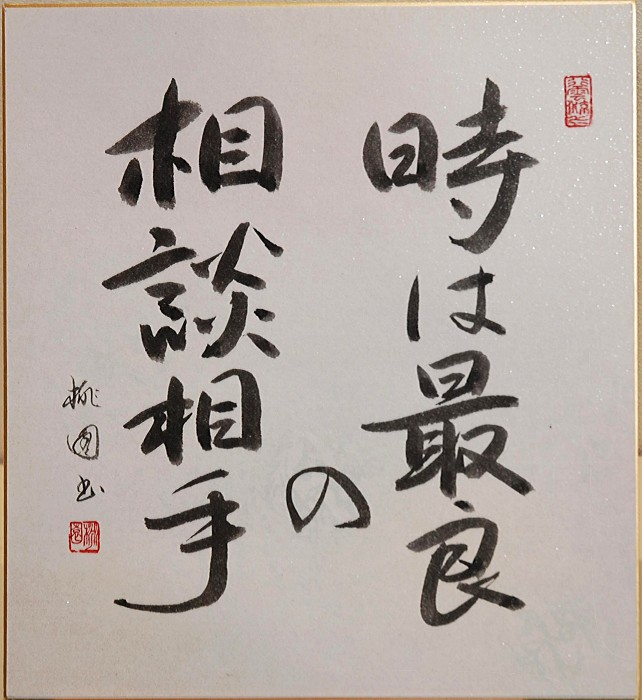 時は最良
の
相談相手
桃園書